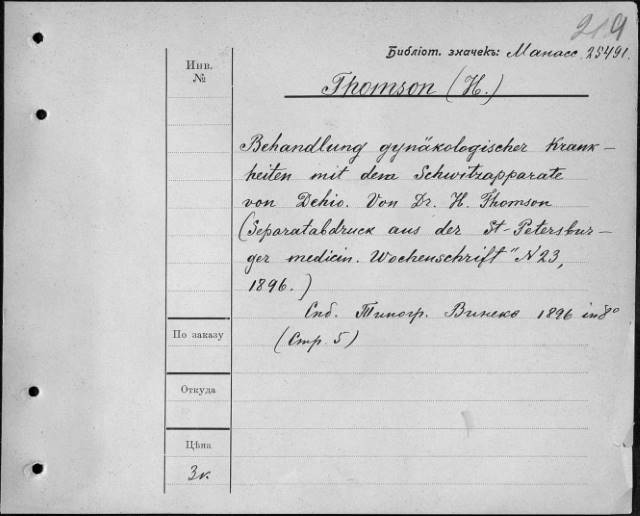 219
Библіот. значекъ: Манасс. 25491.
Инв.
№
Thomson (H.)
Behandlung gynäkologischer Krank-
heiten mit dem Schwitzapparate
von Dehio. Von Dr. H. Thomson
(Separatabdruck aus der St-Petersbur-
ger medicin. Wochenschrift" N 23,
1896.)
Спб. Типогр. Винеке 1896 in 8°
(Стр. 5)
По заказу
Откуда
Цѣна
3 к.